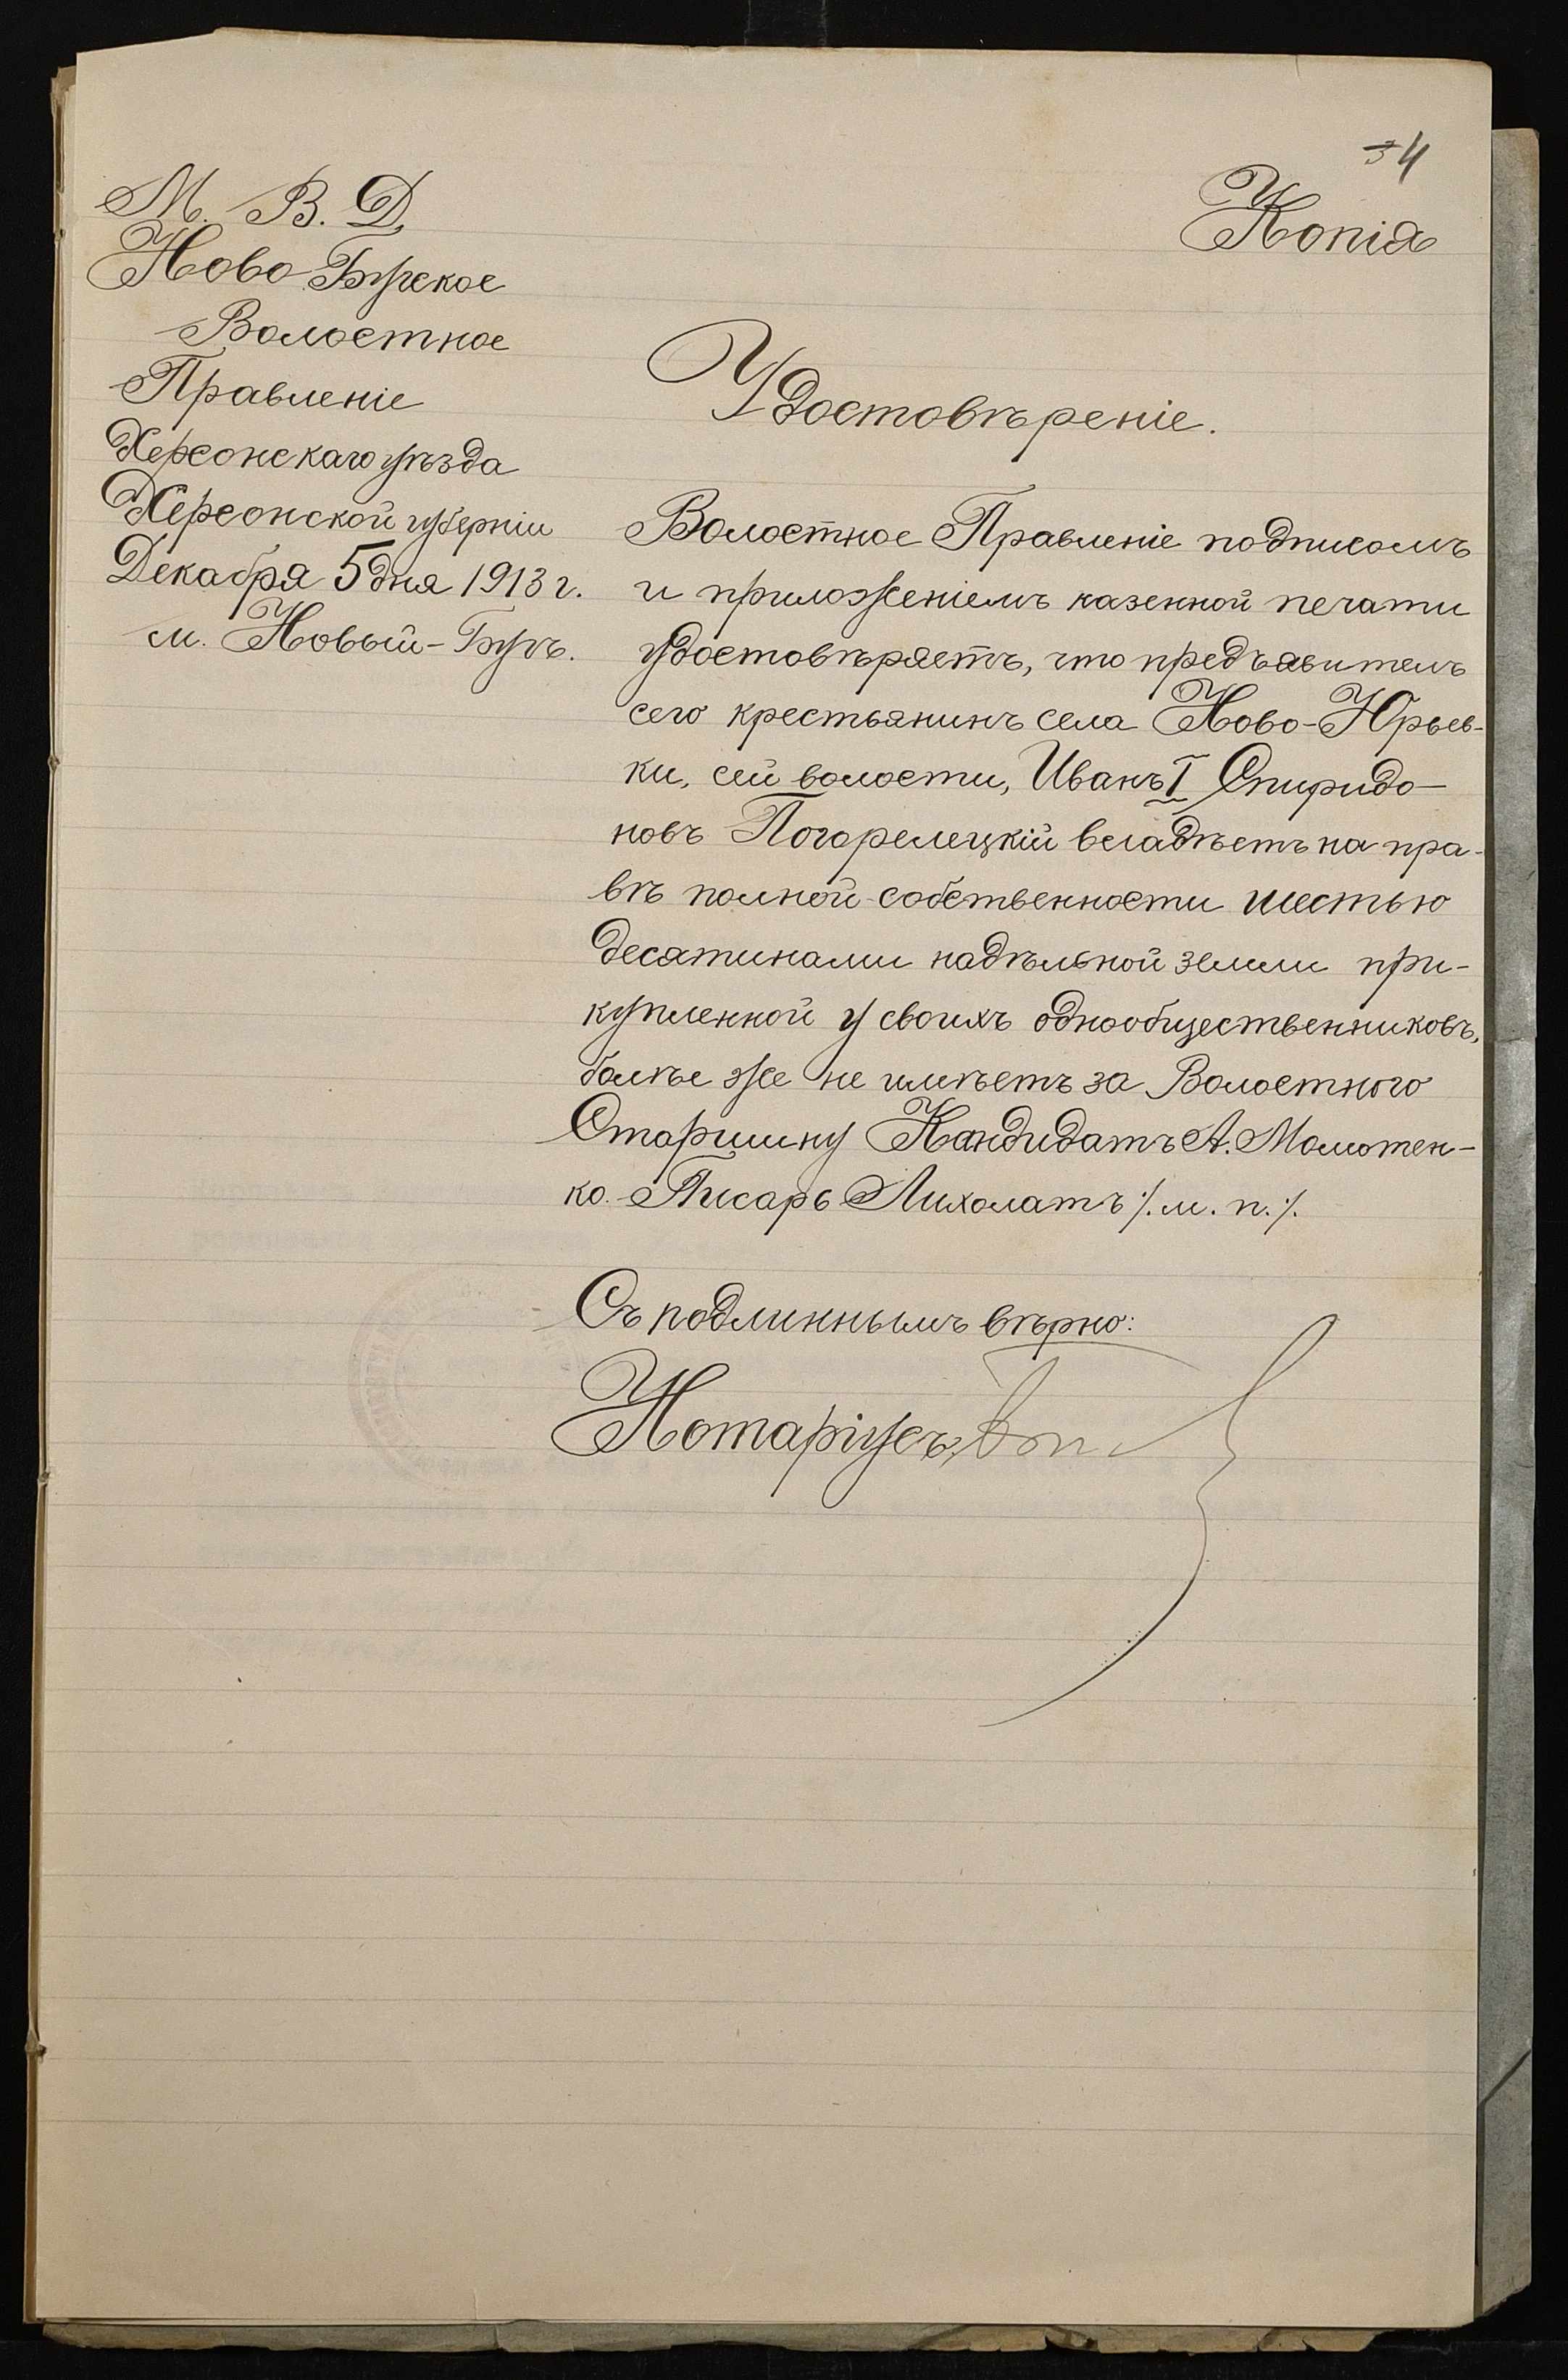 4
Копія
М. В. Д.
Ново-Бугское
Волостное
Правленіе
Херсонскаго уѣзда
Херсонской губерніи
Декабря 5 дня 1913 г.
м. Новый-Бугъ.
Удостовѣреніе.
Волостное Правленіе подписомъ
и приложеніемъ казенной печати
удостовѣряетъ, что предъявитель
сего крестьянинъ села Ново-Юрьев-
ки, сей волости, Иванъ I Спиридо-
новъ Погорелецкій владѣетъ на пра-
вѣ полной собственности шестью
десятинами надѣльной земли при-
купленной у своихъ однообщественниковъ,
болѣе же не имѣетъ за Волостного
Старшину Кандидатъ А. Момотен-
ко. Писарь Лихолатъ /. м. п. /.
Съ подлиннымъ вѣрно:
Нотаріусъ